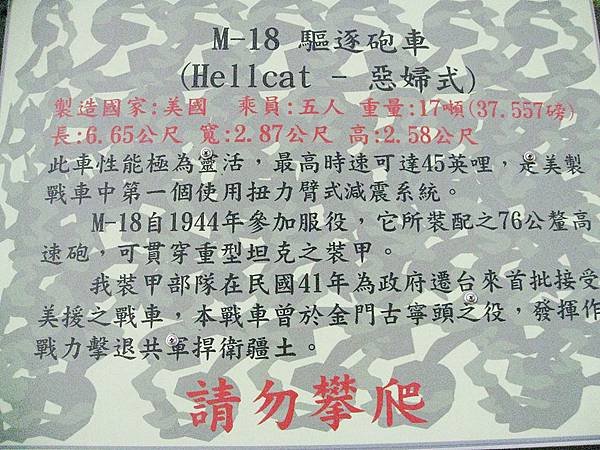 M-18 驅逐砲車
(Hellcat - 惡婦式)
製造國家:美國 乘員:五人 重量:17噸(37.557磅)
長:6.65公尺 寬:2.87公尺 高:2.58公尺
此車性能極為靈活，最高時速可達45英哩，是美製
戰車中第一個使用扭力臂式減震系統。
M-18自1944年參加服役，它所裝配之76公釐高
速砲，可貫穿重型坦克之裝甲。
我裝甲部隊在民國41年為政府遷台來首批接受
美援之戰車，本戰車曾於金門古寧頭之役，發揮作
戰力擊退共軍捍衛疆土。
請勿攀爬